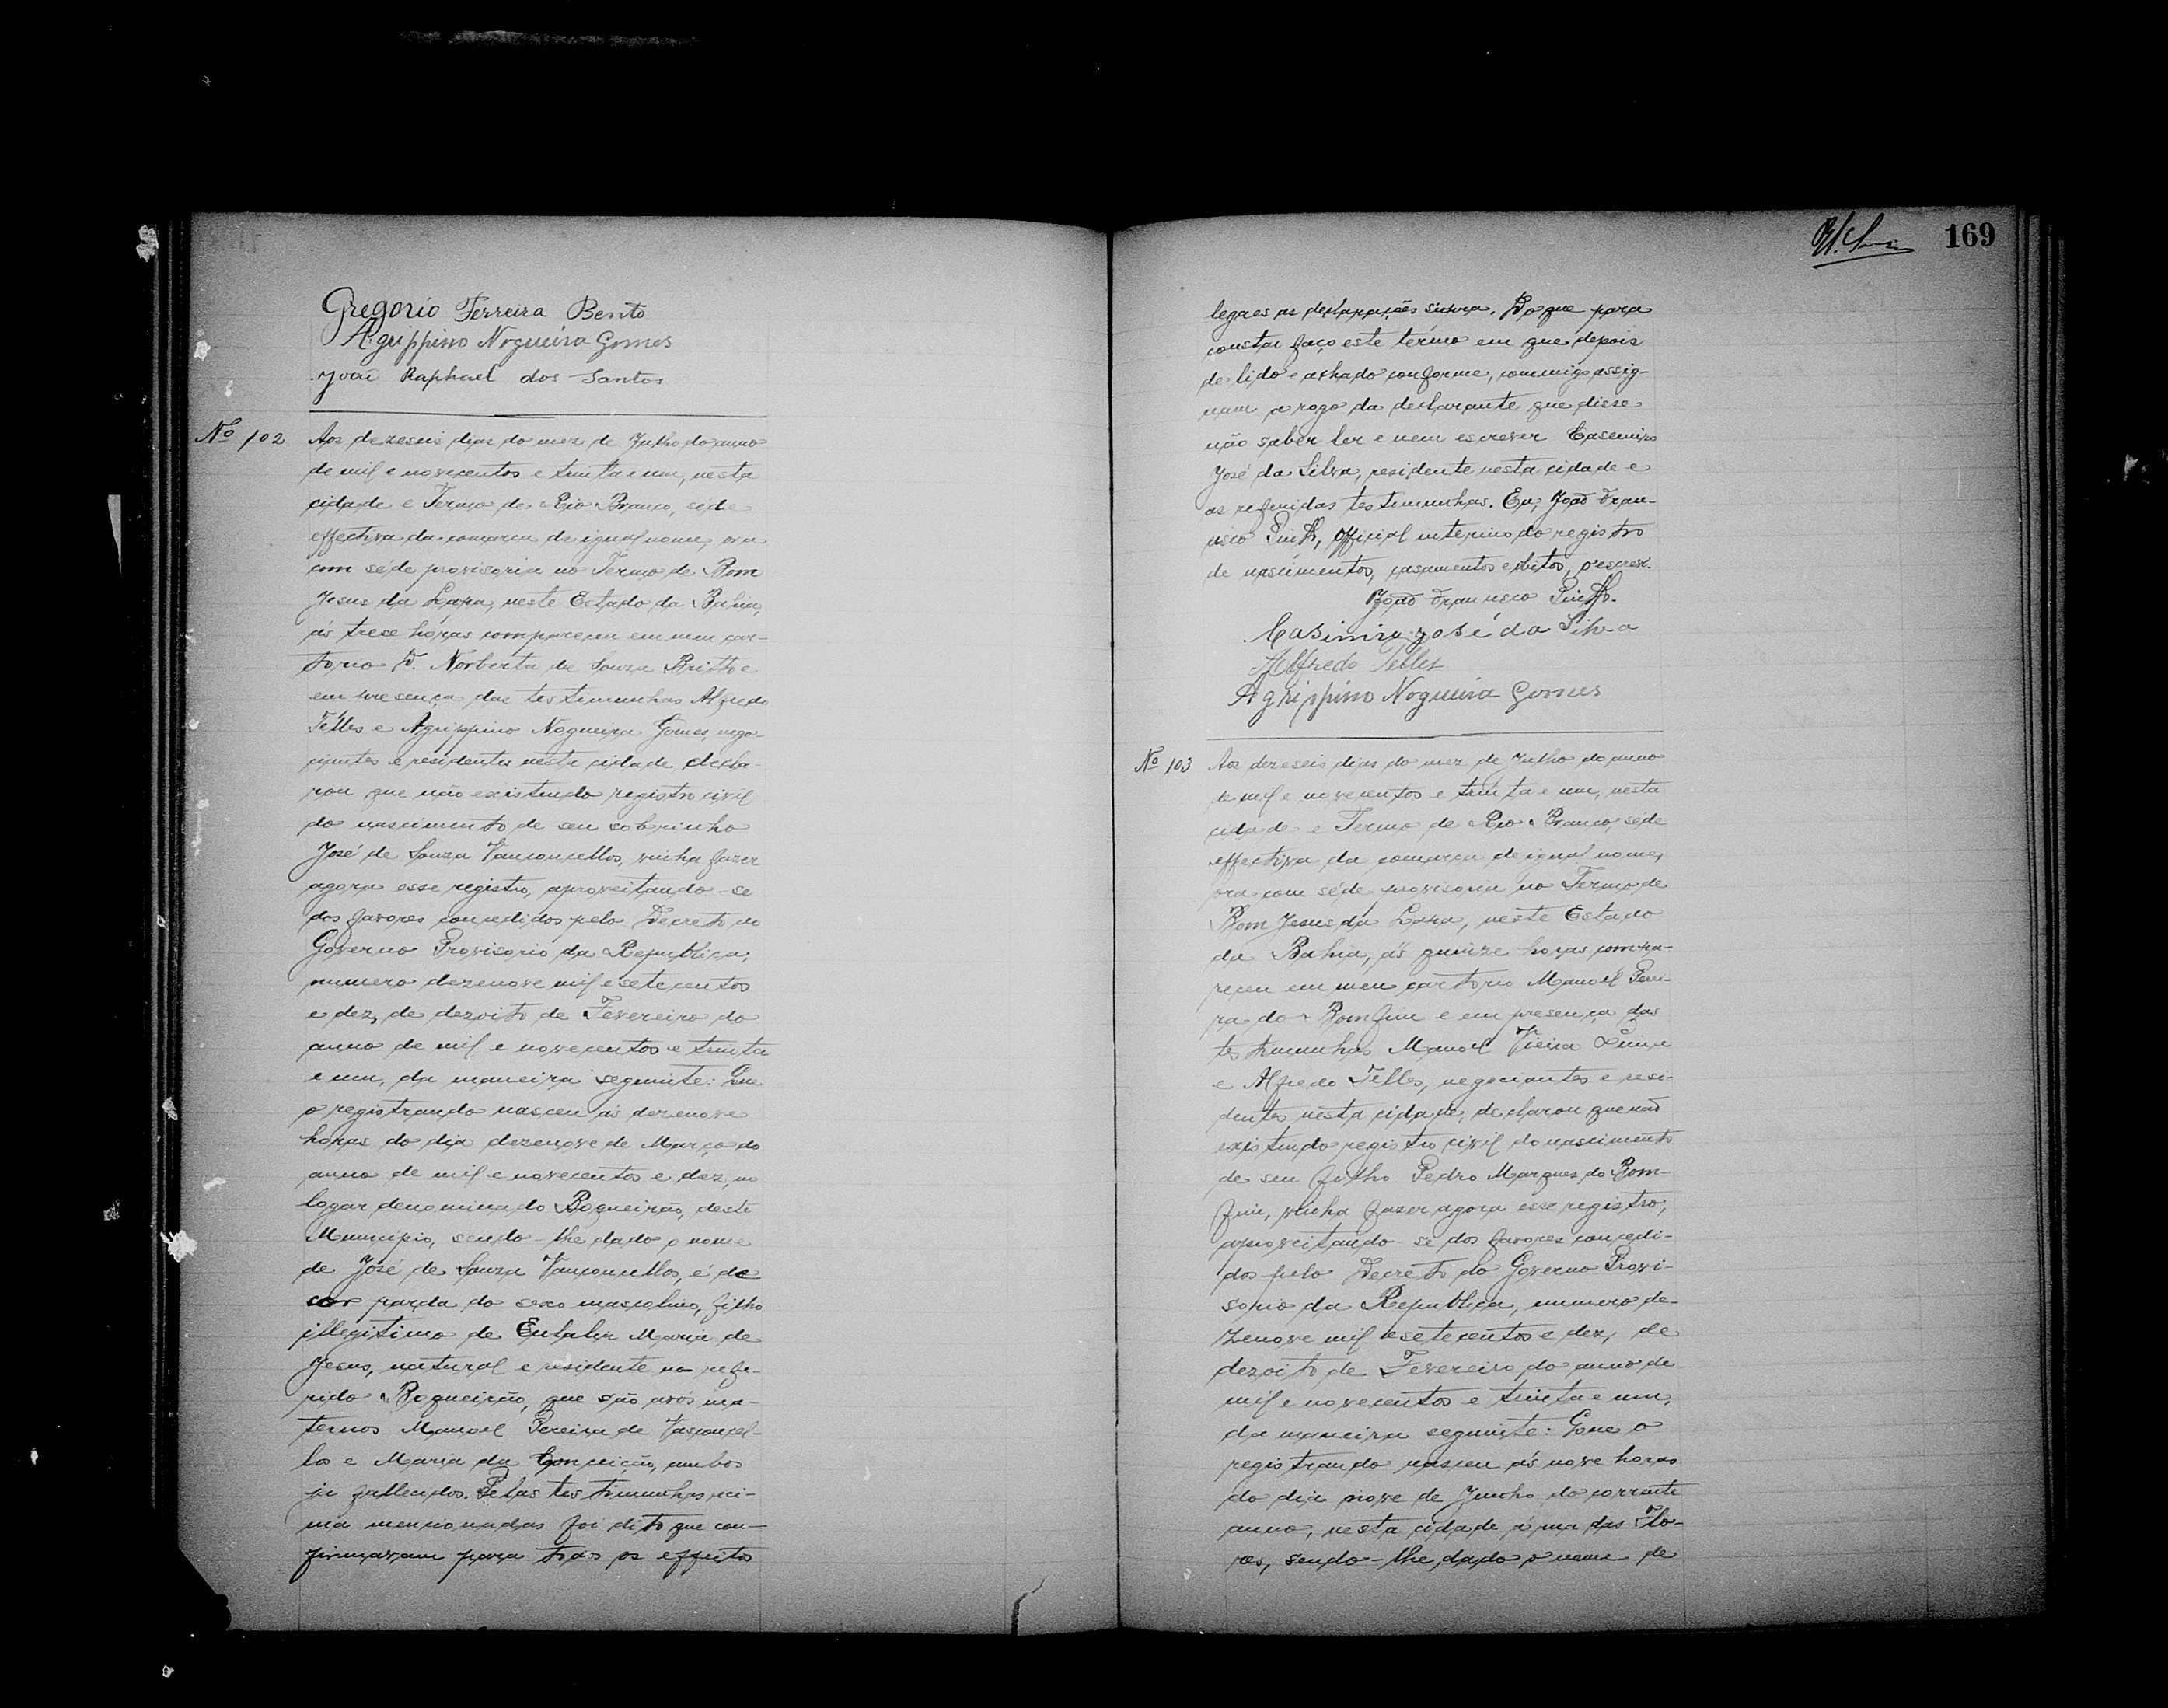 Gregorio Ferreira Bento
Agrippino Nogueira Gomes
João Raphael dos Santos
Nº 102 Aos dezeseis dias do mez de Julho do anno
de mil e novecentos e trinta e um, nesta
cidade e Termo de Rio Branco, séde
effectiva da comarca de igual nome, ora
com séde provisoria no Termo de Bom
Jesus da Lapa, neste Estado da Bahia,
ás treze horas compareceu em meu car-
torio D. Norberta de Souza Britto e
em presença das testimunhas Alfredo
Telles e Agrippino Nogueira Gomes, nego-
ciantes e residentes nesta cidade decla-
rou que não existindo registro civil
do nascimento de seu sobrinho
José de Souza Vasconcellos, vinha fazer
agora esse registro, aproveitando-se
dos favores concedidos pelo Decreto do
Governo Provisorio da Republica,
numero dezenove mil e setecentos
e dez, de dezoito de Fevereiro do
anno de mil e novecentos e trinta
e um, da maneira seguinte: Que
o registrando nasceu ás dezenove
horas do dia dezenove de Março do
anno de mil e novecentos e dez, no
logar denominado Boqueirão, deste
Municipio, sendo-lhe dado o nome
de José de Souza Vasconcellos, é de
cor parda do sexo masculino, filho
illegitimo de Eulalia Maria de
Jesus, natural e residente no refe-
rido Boqueirão, que são avós ma-
ternos Manoel Pereira de Vasconcel-
los e Maria da Conceição, ambos
já fallecidos. Pelas testimunhas aci-
ma mencionadas foi dito que con-
firmavam para todos os effeitos
169
legaes as declarações supra. Do que para
constar faço este térmo em que depois
de lido e achado conforme, commigo assig-
nam a rogo da declarante que disse
não saber ler e nem escrever Casemiro
José da Silva, residente nesta cidade e
as referidas testimunhas. Eu, João Fran-
cisco Pinto, official interino do registro
de nascimentos, casamentos e obitos, o escrevi.
João Francisco Pinto.
Casimiro José da Silva
Alfredo Telles
Agrippino Nogueira Gomes
Nº 103 Aos dezeseis dias do mez de Julho do anno
de mil e novecentos e trinta e um, nesta
cidade e Termo de Rio Branco, séde
effectiva da comarca de igual nome,
ora com séde provisoria no Termo de
Bom Jesus da Lapa, neste Estado
da Bahia, ás quinze horas compa-
receu em meu cartorio Manoel Perei-
ra do Bomfim e em presença das
testimunhas Manoel Vieira Lima
e Alfredo Telles, negociantes e resi-
dentes nesta cidade, declarou que não
existindo registro civil do nascimento
de seu filho Pedro Marques do Bom-
fim, vinha fazer agora esse registro,
aproveitando-se dos favores concedi-
dos pelo Decreto do Governo Provi-
sorio da Republica, numero de-
zenove mil e setecentos e dez, de
dezoito de Fevereiro do anno de
mil e novecentos e trinta e um,
da maneira seguinte: Que o
registrando nasceu ás nove horas
do dia nove de Junho do corrente
anno, nesta cidade á rua das Flo-
res, sendo-lhe dado o nome de